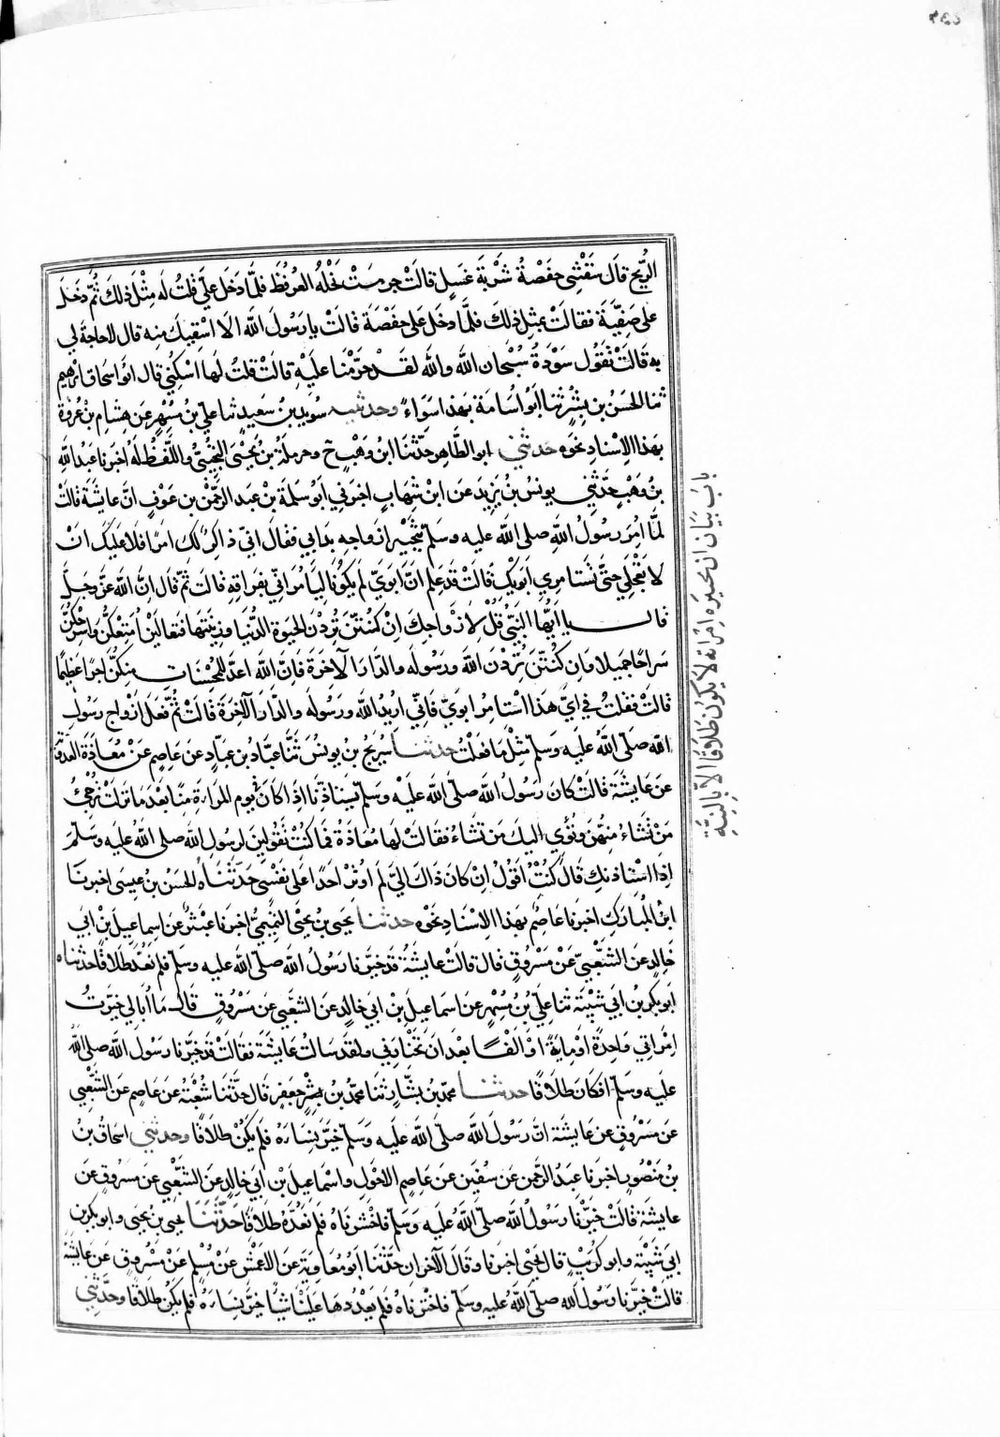 الريح قال سقتني حفصة شربة عسل قالت جرست نحله العرفط فلما دخل علي قلت له مثل ذلك ثم دخل
على صفية فقالت بمثل ذلك فلما دخل على حفصة قالت يا رسول الله الا اسقيك منه قال لا حاجة لي
به قالت تقول سودة سبحان الله والله لقد حرمناه عليه قالت قلت لها اسكتي قال ابو اسحاق ابرهيم
ثنا الحسن بن بشر ثنا ابو اسامة بهذا سواء وحدثنيه سويد بن سعيد ثنا علي بن مسهر عن هشام بن عروة
بهذا الاسناد نحوه حدثني ابو الطاهر حدثنا ابن وهب ح وحرملة بن يحيى التجيبي واللفظ له اخبرنا عبد الله
بن وهب حدثني يونس بن يزيد عن ابن شهاب اخبرني ابو سلمة بن عبد الرحمن بن عوف ان عايشة قالت
لما امر رسول الله صلى الله عليه وسلم بتخيير ازواجه بدا بي فقال اني ذاكر لك امرا فلا عليك ان
لا تعجلي حتى تستامري ابويك قالت قد علم ان ابوي لم يكونا ليامراني بفراقه قالت ثم قال ان الله عز وجل
قال يا ايها النبي قل لازواجك ان كنتن تردن الحيوة الدنيا وزينتها فتعالين امتعكن واسرحكن
سراحا جميلا وان كنتن تردن الله ورسوله والدار الآخرة فان الله اعد للمحسنات منكن اجرا عظيما
قالت فقلت في اي هذا استامر ابوي فاني اريد الله ورسوله والدار الآخرة قالت ثم فعل ازواج رسول
الله صلى الله عليه وسلم مثل ما فعلت حدثنا سريج بن يونس ثنا عباد بن عباد عن عاصم عن معاذة العدوية
عن عايشة قالت كان رسول الله صلى الله عليه وسلم يستاذننا اذا كان في يوم المراة منا بعد ما نزلت ترجي
من تشاء منهن وتؤي اليك من تشاء فقالت لها معاذة فما كنت تقولين لرسول الله صلى الله عليه وسلم
اذا استاذنك قال كنت اقول ان كان ذاك الي لم اوثر احدا على نفسي حدثناه الحسن بن عيسى اخبرنا
ابن المبارك اخبرنا عاصم بهذا الاسناد نحوه حدثنا يحيى بن يحيى التميمي اخبرنا عبثر عن اسماعيل بن ابي
خالد عن الشعبي عن مسروق قال قالت عايشة قد خيرنا رسول الله صلى الله عليه وسلم فلم نعده طلاقا حدثناه
ابو بكر بن ابي شيبة ثنا علي بن مسهر عن اسماعيل بن ابي خالد عن الشعبي عن مسروق قال ما ابالي خيرت
امراتي واحدة او ماية او الفا بعد ان تختارني ولقد سالت عايشة فقالت قد خيرنا رسول الله صلى الله
عليه وسلم افكان طلاقا حدثنا محمد بن بشار ثنا محمد بن جعفر قال حدثنا شعبة عن عاصم عن الشعبي
عن مسروق عن عايشة ان رسول الله صلى الله عليه وسلم خير نساءه فلم يكن طلاقا وحدثني اسحاق بن
بن منصور اخبرنا عبد الرحمن عن سفين عن عاصم الاحول واسماعيل بن ابي خالد عن الشعبي عن مسروق عن
عايشة قالت خيرنا رسول الله صلى الله عليه وسلم فاخترناه فلم نعده طلاقا حدثنا يحيى بن يحيى وابو بكر بن
ابي شيبة وابو كريب قال يحيى اخبرنا وقال الآخران حدثنا ابو معاوية عن الاعمش عن مسلم عن مسروق عن عايشة
قالت خيرنا رسول الله صلى الله عليه وسلم فاخترناه فلم يعددها علينا شيا خير نساءه فلم يكن طلاقا وحدثني
باب بيان ان تخييره امراته لا يكون طلاقا الا بالنية